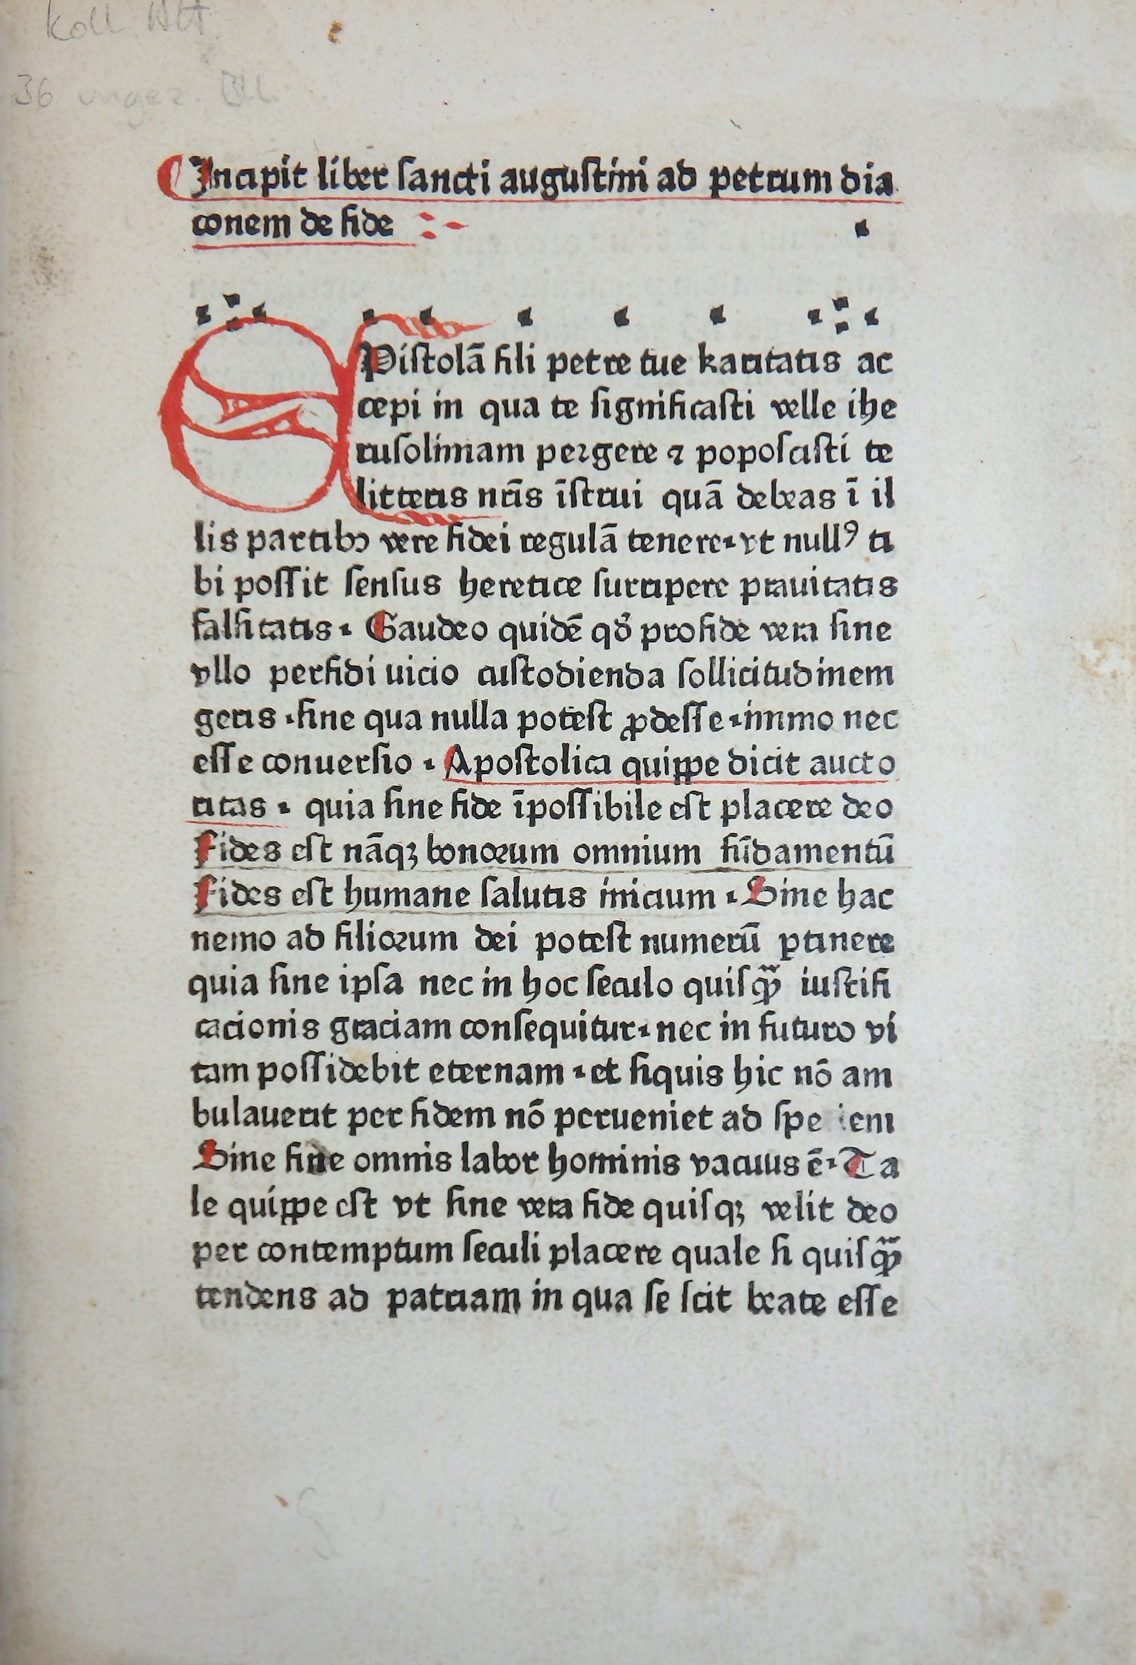 koll.
36 ungez. Bll.
Incipit liber sancti augustini ad petrum dia
conem de fide :-
EPistolā fili petre tue karitatis ac
cepi in qua te significasti velle ihe
rusolimam pergere ⁊ poposcisti te
litteris nr̄is īstrui quā debeas ī il
lis partibꝰ vere fidei regulā tenere. vt nullꝰ ti
bi possit sensus heretice surripere prauitatis
falsitatis. Gaudeo quidē qȱ pro fide vera sine
vllo perfidi uicio custodienda sollicitudinem
geris .sine qua nulla potest ꝓdesse. immo nec
esse conuersio . Apostolica quippe dicit aucto
ritas . quia sine fide īpossibile est placere deo
Fides est nāqꝫ bonorum omnium fūdamentū
Fides est humane salutis inicium . Sine hac
nemo ad filiorum dei potest numerū ꝑtinere
quia sine ipsa nec in hoc seculo quisꝙ̄ iustifi
cacionis graciam consequitur. nec in futuro vi
tam possidebit eternam . et siquis hic nō am
bulauerit per fidem nō perueniet ad spe iem
Sine fide omnis labor hominis vacuus ē. Ta
le quippe est vt sine vera fide quisqꝫ velit deo
per contemptum seculi placere quale si quisꝙ̄
tendens ad patriam in qua se scit beate esse